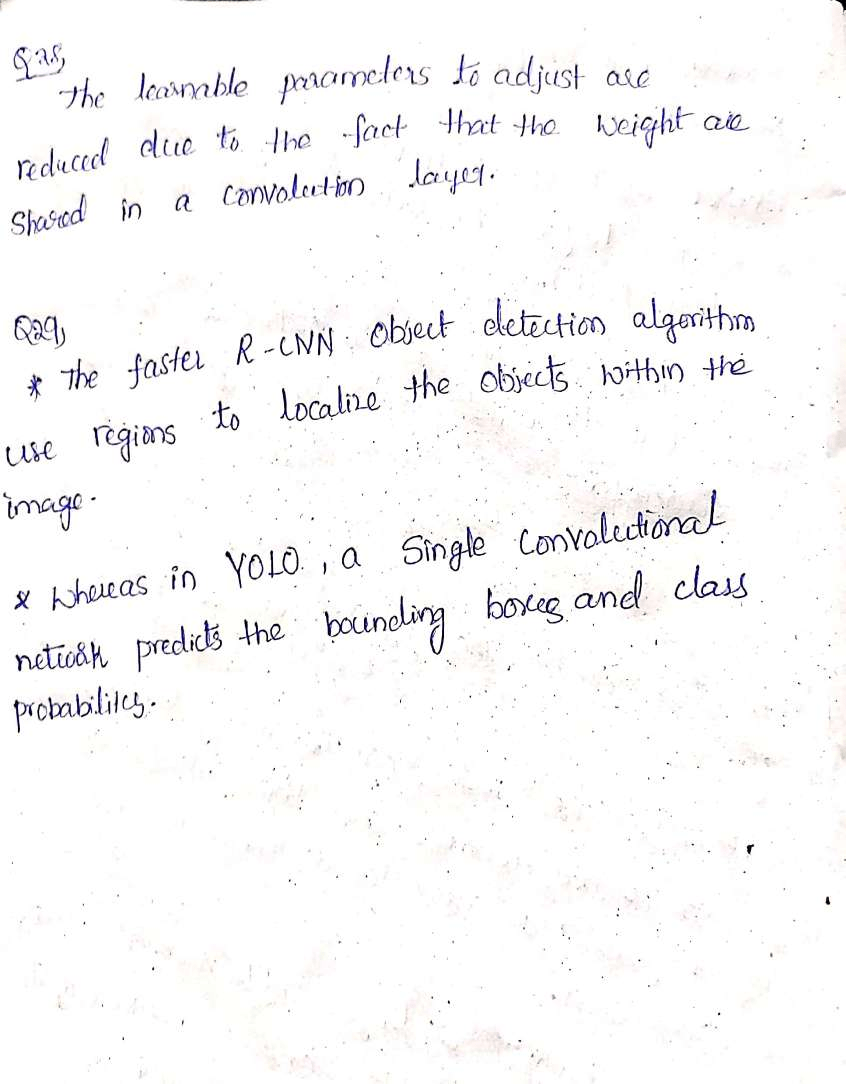 Q28,
The learnable parameters to adjust are
reduced due to the fact that the Weight are
Shared in a Convolution layer.
Q29,
* The faster R-CNN Object detection algorithm
use regions to localize the Objects within the
image.
* Whereas in YOLO, a Single Convolutional
network predicts the bounding boxes and class
probabilities.